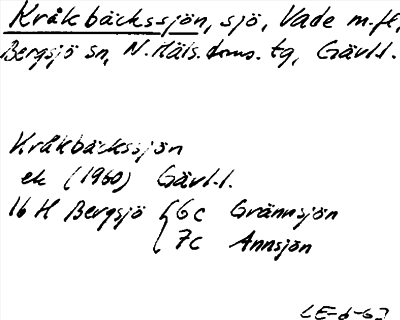 Kråkbäckssjön, sjö, Vade m.fl.,
Bergsjö sn, N. Häls. doms. tg, Gävl.l.
Kråkbäckssjön
ek (1960) Gävl.l.
16 H Bergsjö { 6c Grännsjön
7c Annsjön